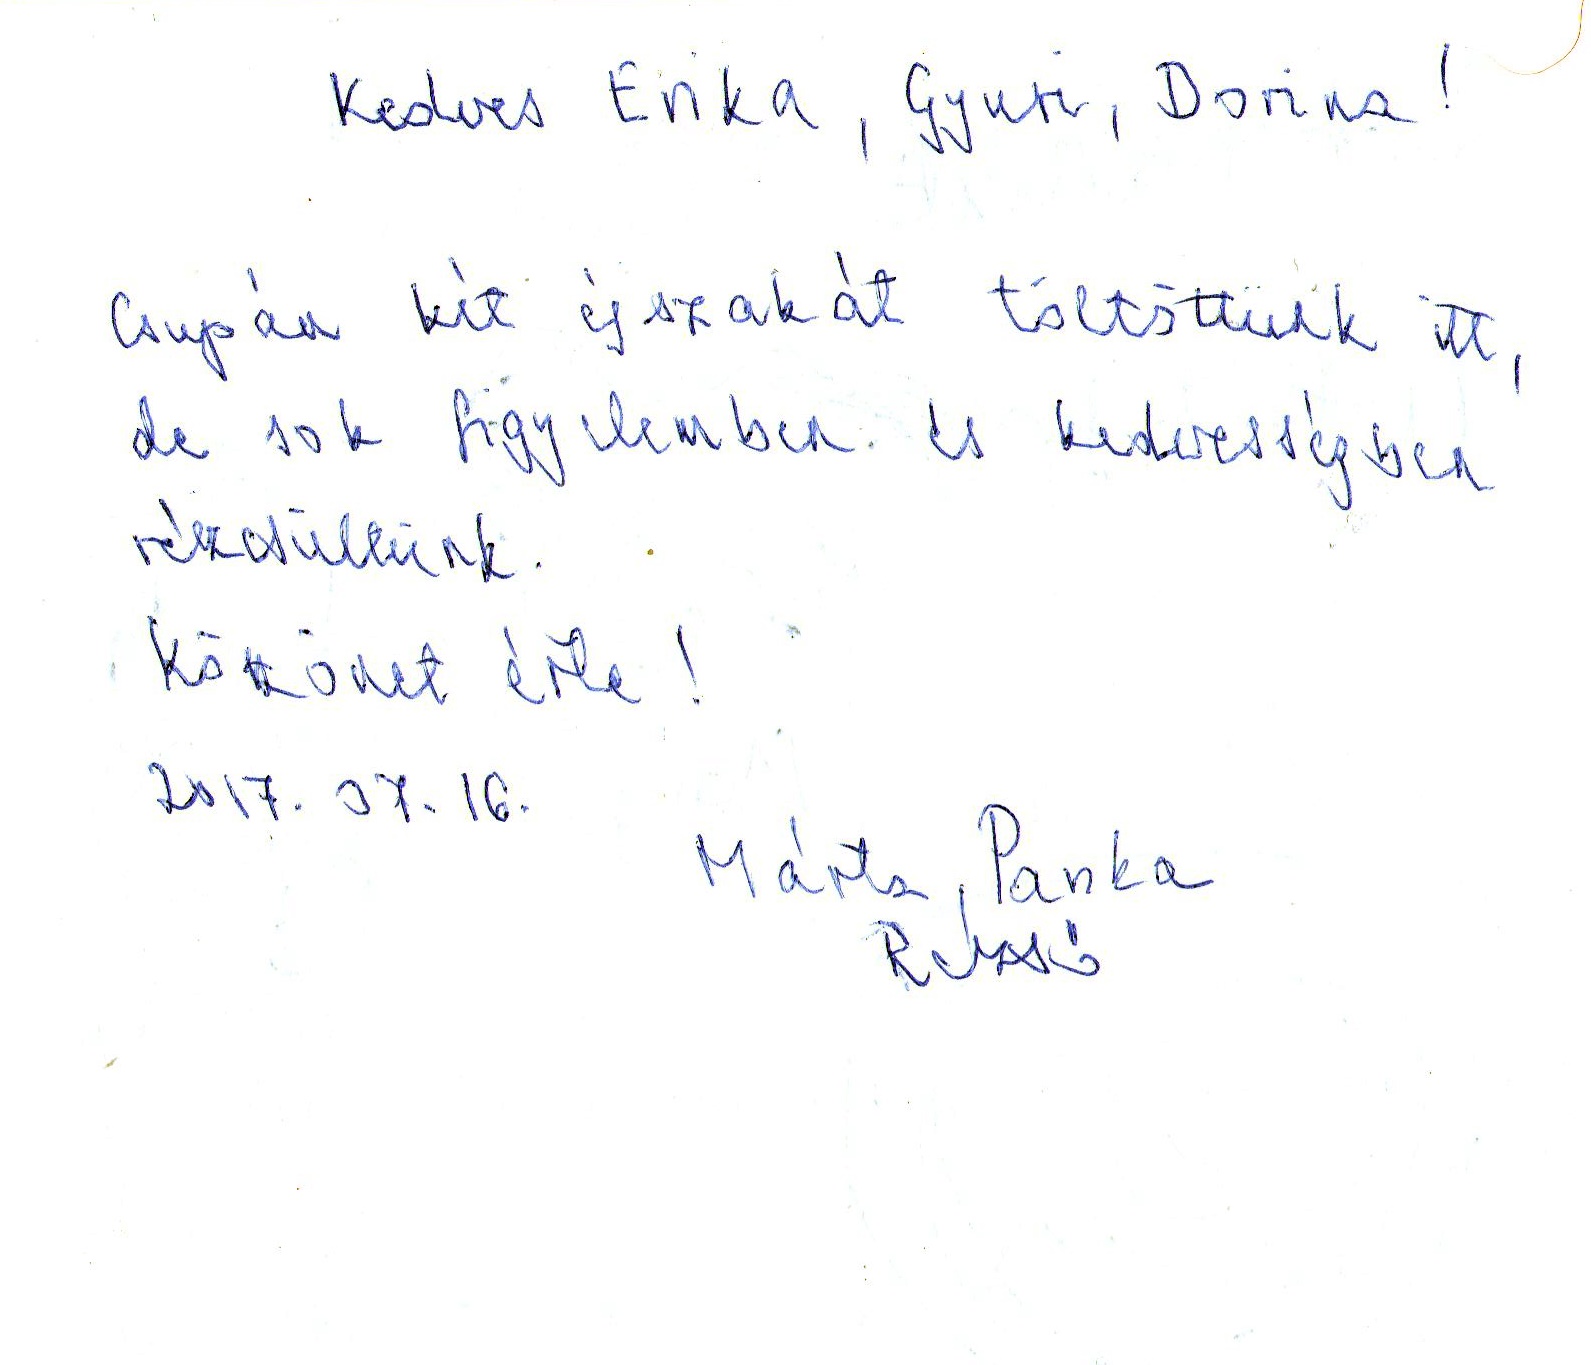 Kedves Erika, Gyuri, Dorina!
Csupán két éjszakát töltöttünk itt,
de sok figyelemben és kedvességben
részesültünk.
Köszönet érte!
2017. 07. 16.
Márta, Panka
Rezső